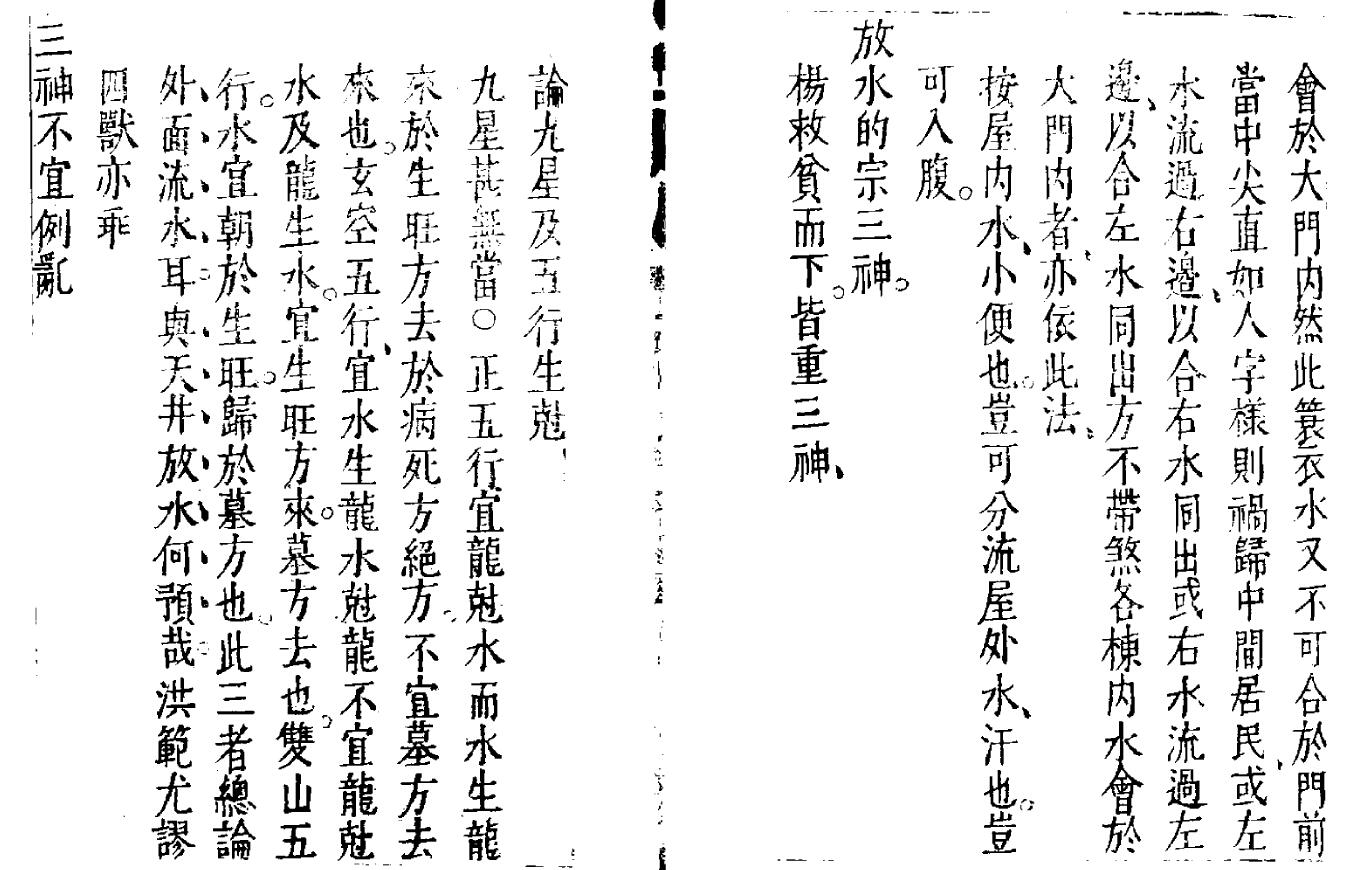 會於大門内然此簑衣水又不可合於門前
當中尖直如人字樣則禍歸中間居民、或左
水流過右邊、以合右水同出或右水流過左
邊、以合左水同出方不帶煞各棟内水會於
大門内者、亦依此法、
按屋内水、小便也。豈可分流屋外水、汗也。豈
可入腹。
放水的宗三神。
楊救貧而下。皆重三神、
論九星及五行生尅、
九星甚無當○正五行、宜龍尅水而水生龍
來於生旺方去於病死方絕方。不宜墓方去
來也。玄空五行、宜水生龍水尅龍不宜龍尅
水及龍生水。宜生旺方來。墓方去也。雙山五
行。水宜朝於生旺。歸於墓方也。此三者總論
外面流水耳與天井放水何預哉洪範尤謬
四獸亦乖
三神不宜例亂